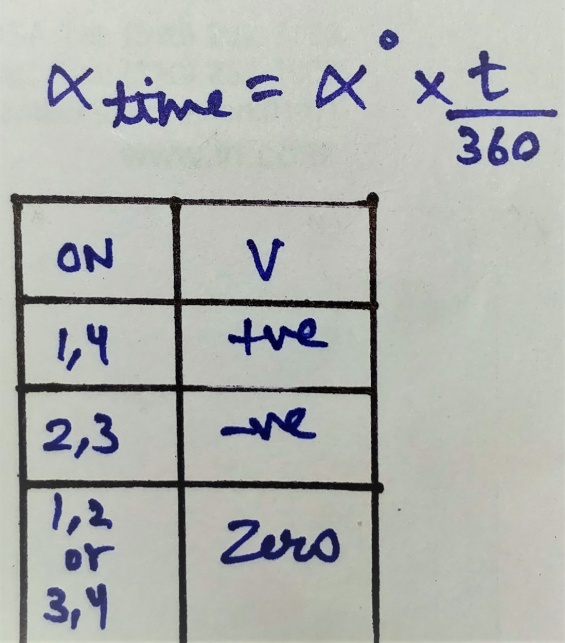 α time = α° × t/360
ON V
1,4 +ve
2,3 -ve
1,2
or Zero
3,4